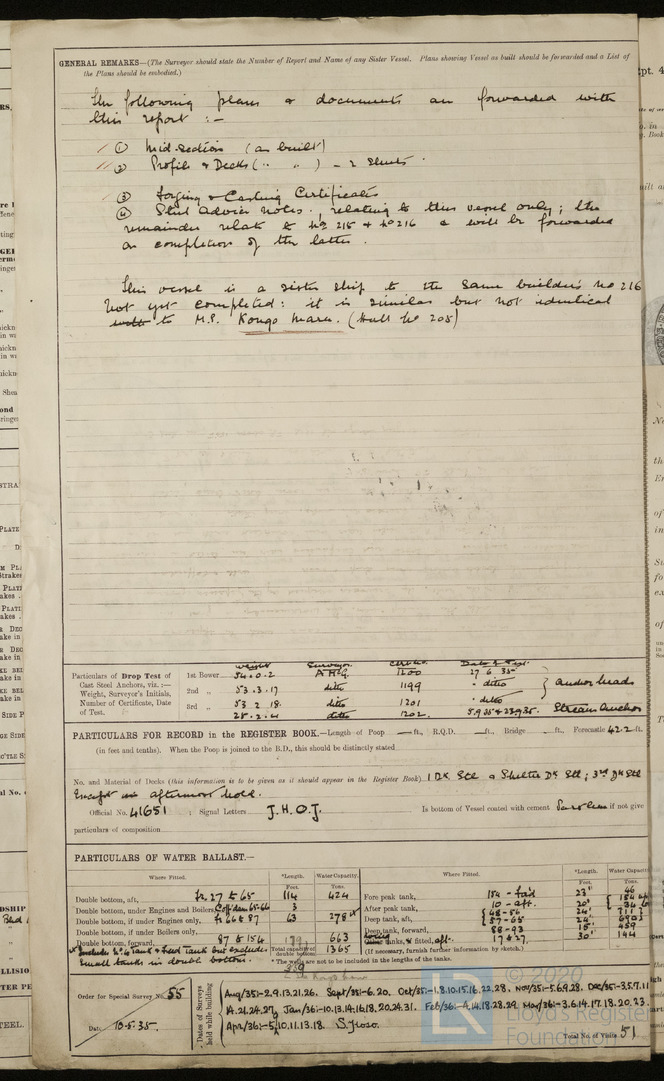 GENERAL REMARKS—(The Surveyor should state the Number of Report and Name of any Sister Vessel. Plans showing Vessel as built should be forwarded and a List of
the Plans should be embodied.)
The following plans & documents are forwarded with
this report :-
① Mid-Section (as built)
② Profile & Decks (" " ) - 2 Sheets.
③ Forging & Casting Certificates
④ Steel Advice Notes, relating to this vessel only; the
remainder relate to No 215 & No 216 & will be forwarded
on completion of the latter.
This vessel is a sister ship to the same builders No 216
not yet completed: it is similar but not identical
to M.S. Kongo Maru. (Hull No 208)
Particulars of Drop Test of
Cast Steel Anchors, viz. :—
Weight, Surveyor's Initials,
Number of Certificate, Date
of Test.
Weight Surveyor Date of Test
1st Bower 54.0.2 1200 27 6 35
2nd " 53.3.17 ditto 1199 ditto
3rd " 53 2 18. ditto 1201 ditto
ditto 1202
anchor heads
Stream Anchor
PARTICULARS FOR RECORD in the REGISTER BOOK.—Length of Poop — ft., R.Q.D. — ft., Bridge — ft., Forecastle 42.2 ft.
(in feet and tenths). When the Poop is joined to the B.D., this should be distinctly stated
No. and Material of Decks (this information is to be given as it should appear in the Register Book) 1 Dk Stl & Shelter Dk Stl; 3rd Dk Stl
Except in aftermost hold.
Official No. 41651 ; Signal Letters J.H.O.J. Is bottom of Vessel coated with cement if not give
particulars of composition
PARTICULARS OF WATER BALLAST.—
Where Fitted. *Length. Water Capacity. Where Fitted. *Length. Water Capacity.
Feet. Tons. Feet. Tons.
Double bottom, aft, fr 27 to 65 114 424
Double bottom, under Engines and Boilers, Cofferdam 65-66 3
Double bottom, if under Engines only, fr 66 to 87 63 278
Double bottom, if under Boilers only,
Double bottom, forward, 87 to 154 663
Total capacity of double bottom 1365
Fore peak tank, 154 - fwd 23' 46
After peak tank, 10 - aft. 20'
Deep tank, aft, 48-56 24' 711
57-65 24' 690
Deep tank, forward, 88-93 15' 459
tanks, if fitted, aft. 17 to 27 30' 144
(If necessary, furnish further information by sketch.)
small tanks in double bottom.
* The wells are not to be included in the lengths of the tanks.
Order for Special Survey No. 55
Date 10.5.35.
Dates of Surveys held while building
Aug/35:-2.9.13.21.26. Sept/35:-6.20. Oct/35:-1.8.10.15.16.22.28. Nov/35:-5.6.9.28. Dec/35:-3.5.7.11
14.21.24.27 Jan/36:-10.13.14.16.18.20.24.31. Feb/36:-4.14.18.28.29. Mar/36:-3.6.14.17.18.20.23.
Apr/36:-5.10.11.13.18.
Total No. of Visits 51
© 2020
Lloyd's Register
Foundation